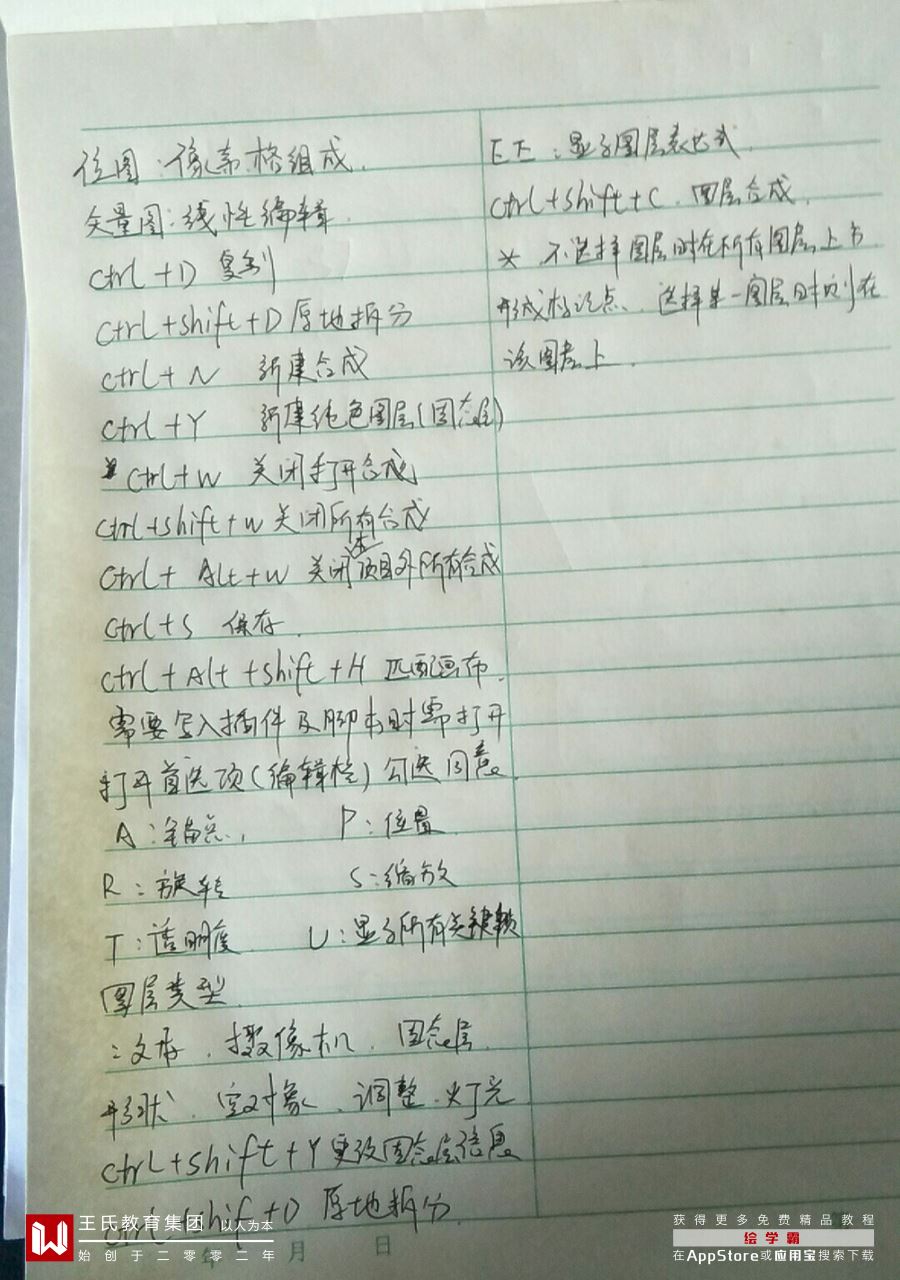 位图：像素格组成.
矢量图：线性编辑.
Ctrl+D 复制
Ctrl+shift+D 原地拆分
Ctrl+N 新建合成
Ctrl+Y 新建纯色图层(固态层)
Ctrl+W 关闭打开合成
Ctrl+shift+W 关闭所有合成
Ctrl+Alt+W 关闭本项目外所有合成
Ctrl+S 保存.
Ctrl+Alt+shift+H 匹配画布.
需要写入插件及脚本时需打开
打开首选项(编辑栏)勾选同意.
A：锚点, P：位置.
R：旋转 S：缩放
T：透明度. U：显示所有关键帧
图层类型.
：文本. 摄像机. 固态层.
形状. 空对象. 调整. 灯光
Ctrl+shift+Y 更改固态层信息
Ctrl+shift+D 原地拆分.
EE：显示图层表达式.
Ctrl+shift+C. 图层合成.
* 不选择图层时在所有图层上方
形成标记点. 选择某一图层时则在
该图层上.
年 月 日
王氏教育集团 以人为本
始创于二零零二年
获得更多免费精品教程
绘学霸
在AppStore或应用宝搜索下载